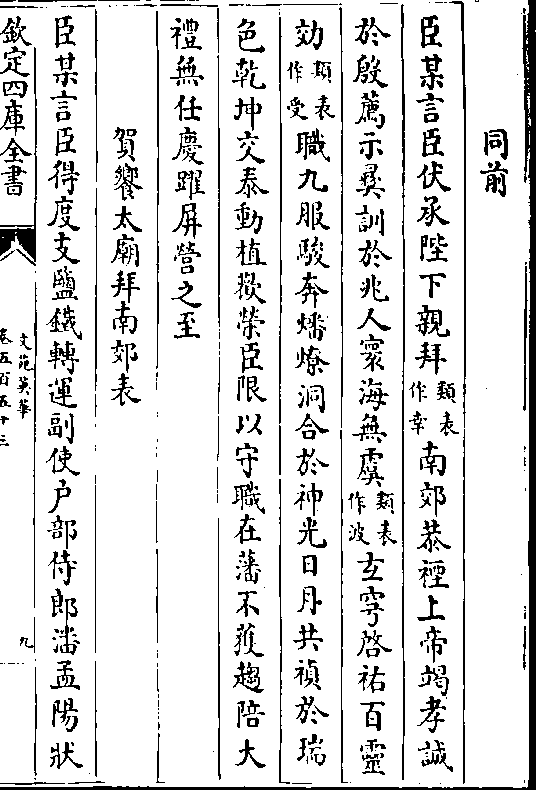 同前
臣某言臣伏承陛下親拜類表作幸南郊恭禋上帝竭孝誠
於殷薦示彞訓於兆人寰海無虞類表作波玄穹啓祐百靈
効類表作受職九服駿奔燔燎洞合於神光日月共禎於瑞
色乾坤交泰動植歡榮臣限以守職在藩不獲趨陪大
禮無任慶躍屏營之至
賀饗太廟拜南郊表
臣某言臣得度支鹽鐵轉運副使户部侍郎潘孟陽狀
欽定四庫全書
文苑英華
卷五百五十三
九